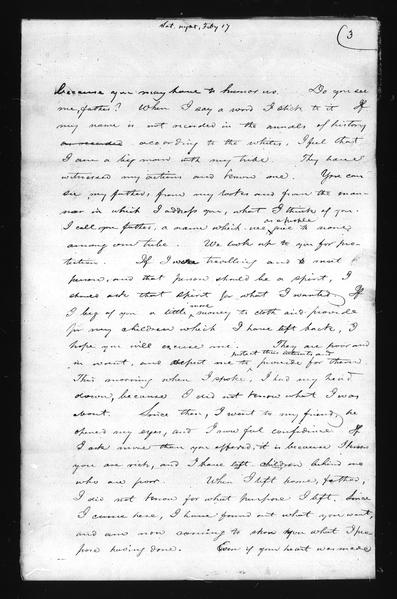 Sat. night, Feby 17
3
because you may have to humor us. Do you see
me, father? When I say a word I stick to it. If
my name is not recorded in the annals of history
according to the whites, I feel that
I am a big man with my tribe. They have
witnessed my actions and know one. You can
see, my father, from my looks and from the man-
ner in which I address you, what I think of you.
as a people
I call you father, a name which we give to none
among our tribe. We look up to you for pro-
tection. If I were travelling and to meet a
person, and that person should be a spirit, I
should ask that spirit for what I wanted. If
more
I beg of you a little money to cloth and provide
for my children which I have left back, I
hope you will excuse me. They are poor and
protect their interests and
in want, and expect me to provide for them
This morning when I spoke, I had my head
down, because I did not know what I was
about. Since then, I went to my friend, he
opened my eyes, and I now feel confidence. If
I ask more than you offered, it is because I know
you are rich, and I have left children behind me
who are poor. When I left home, father,
I did not know for what purpose I left. Since
I came here, I have found out what you want,
and am now coming to show you what I pro-
pose having done. Even if your heart was made